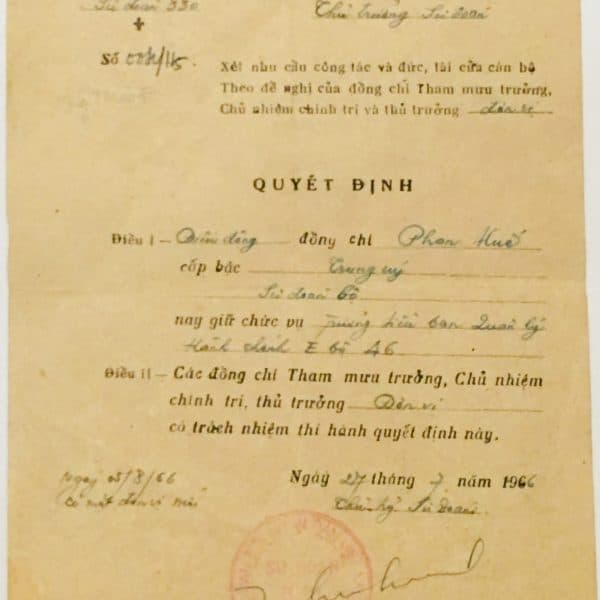 Sư đoàn 330
Thủ trưởng Sư đoàn
Số
Xét nhu cầu công tác và đức, tài của cán bộ
Theo đề nghị của đồng chí Tham mưu trưởng,
Chủ nhiệm chính trị và thủ trưởng đơn vị
QUYẾT ĐỊNH
Điều I — Điều động đồng chí Phan Huế
cấp bậc Trung uý
Sư đoàn bộ
nay giữ chức vụ Trưởng tiểu ban Quản lý
Hành chính E bộ A6
Điều II — Các đồng chí Tham mưu trưởng, Chủ nhiệm
chính trị, thủ trưởng Đơn vị
có trách nhiệm thi hành quyết định này.
Ngày 27 tháng 7 năm 1966
Ngày 05/8/66
có mặt đơn vị mới
Sư Đoàn